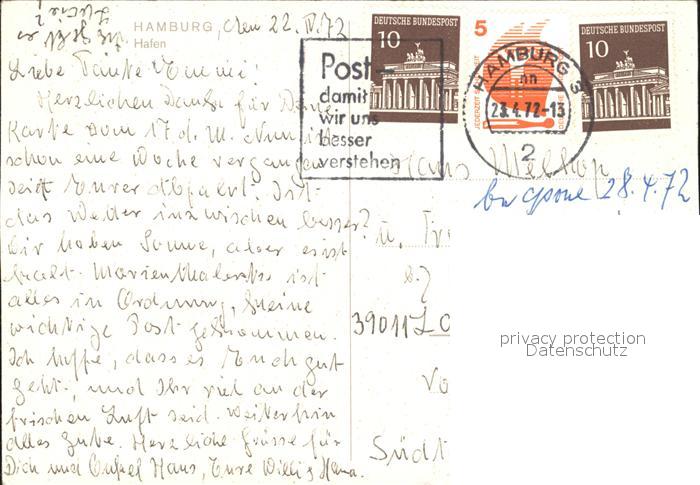 HAMBURG, den 22. IV. 72
Hafen
Liebe Tante Emmi!
Herzlichen Dank für Deine
Karte vom 17. d. M. Nun ist
schon eine Woche vergangen
seit Eurer Abfahrt. Ist
das Wetter inzwischen besser?
Wir haben Sonne, aber es ist
kalt. Marienthalerstr. ist
alles in Ordnung, keine
wichtige Post gekommen.
Ich hoffe, dass es Euch gut
geht, und Ihr viel an der
frischen Luft seid. Weiterhin
alles Gute. Herzliche Grüsse für
Dich und Onkel Hans, Eure Willi & Hena.
DEUTSCHE BUNDESPOST
10
5
JEDERZEIT
DEUTSCHE BUNDESPOST
10
Post
damit
wir uns
besser
verstehen
HAMBURG 3
nn
23.4.72-13
2
Hans
28.4.72
u. Fr
39011 L
Südt
privacy protection
Datenschutz